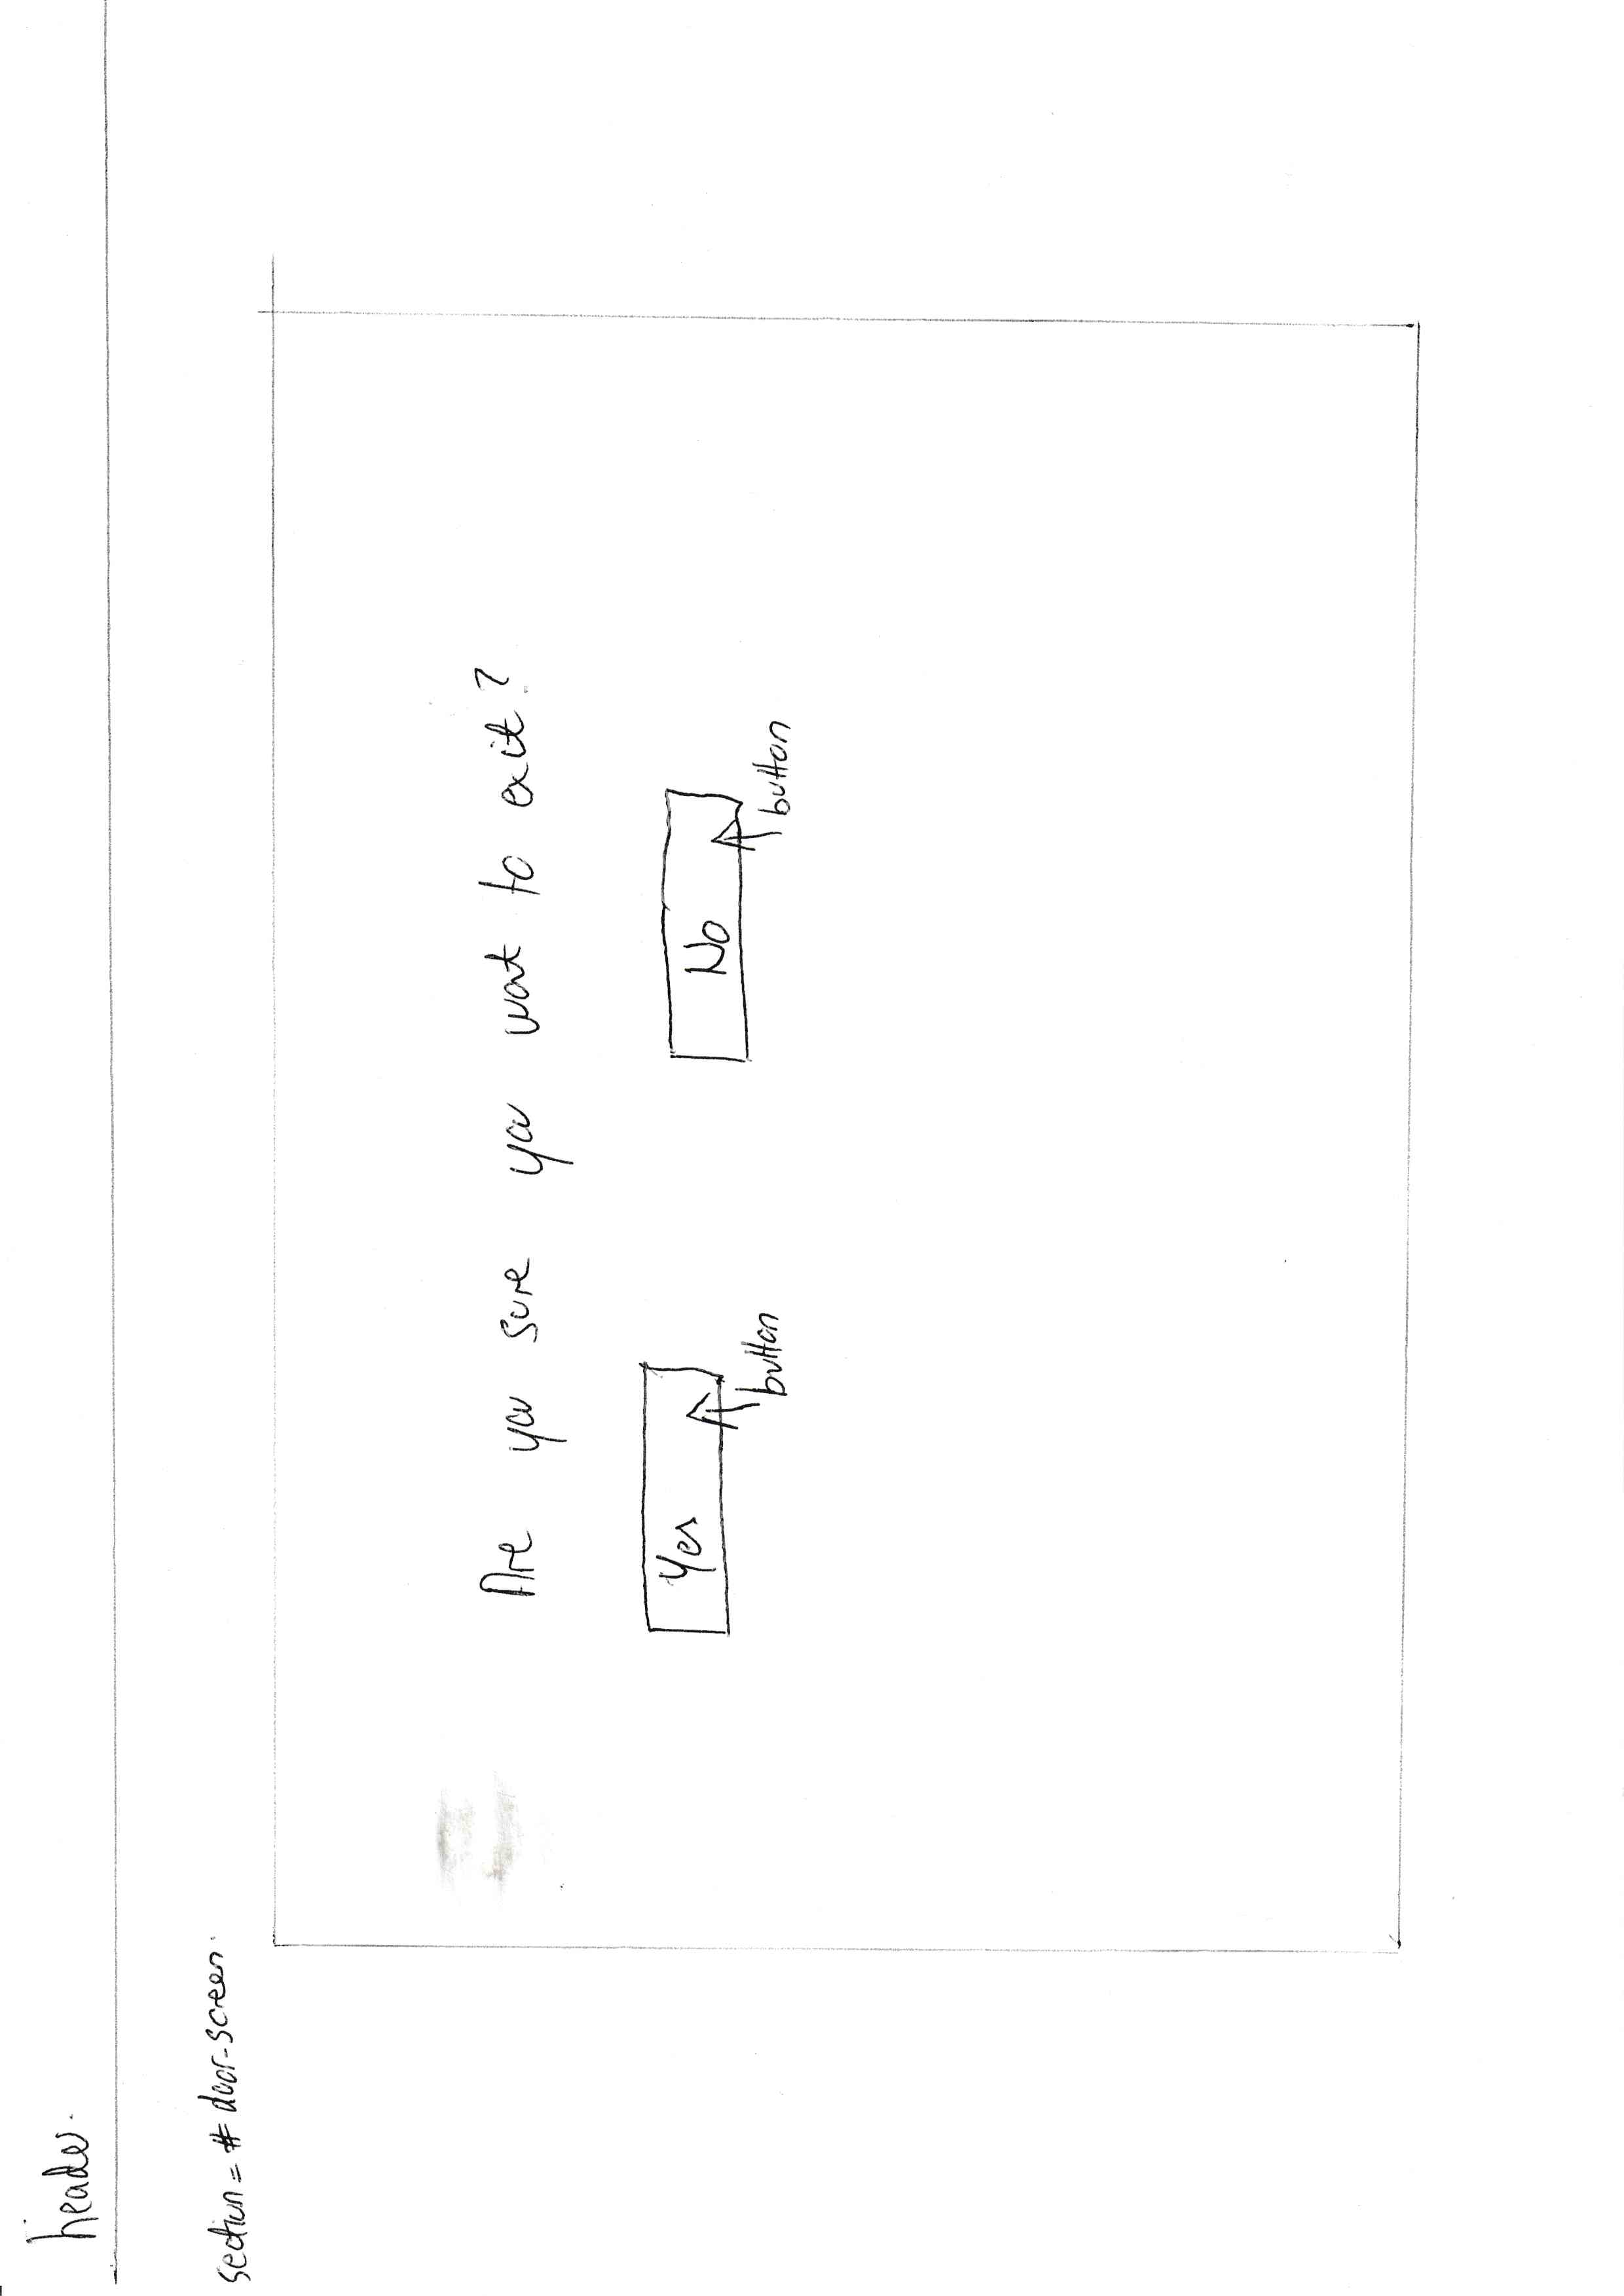 header.
section = # door-screen.
Are you sure you want to exit?
Yes
No
button
button